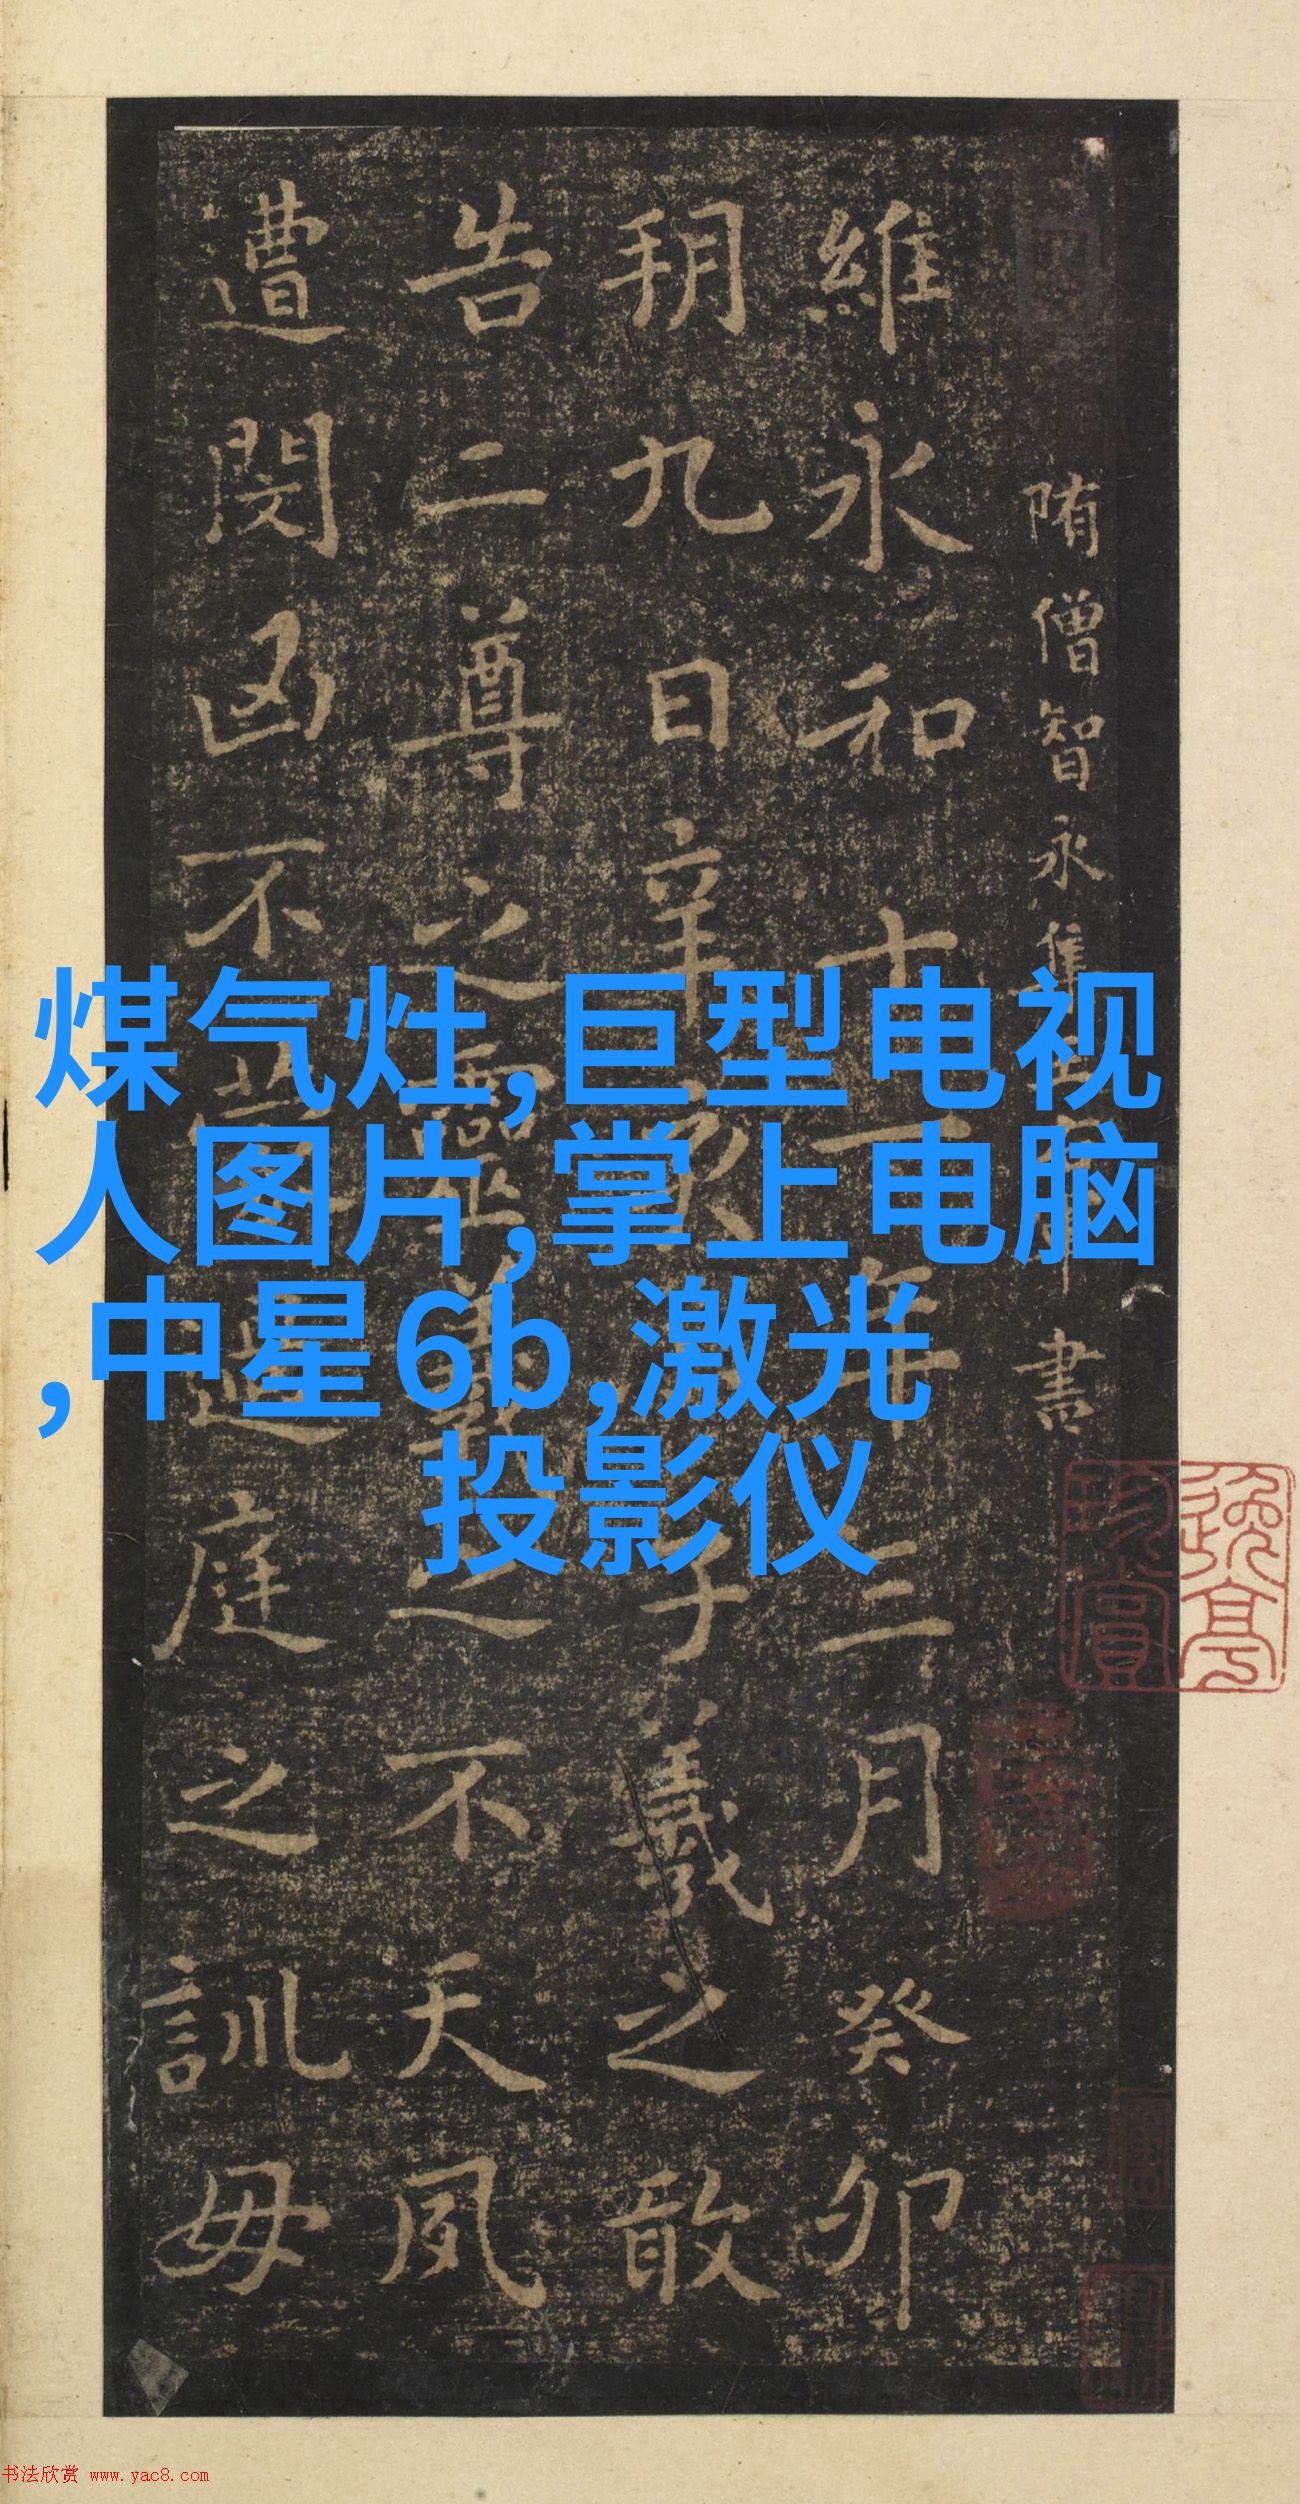 煤气灶,巨型电视
人图片,掌上电脑
,中星6b,激光
投影仪
隋僧智永集書
維永和十一年三月癸卯
朔九日辛子羲之敢
告二尊之靈羲之不天夙
遭閔凶不過庭之訓毋
书法欣赏 www.yac8.com